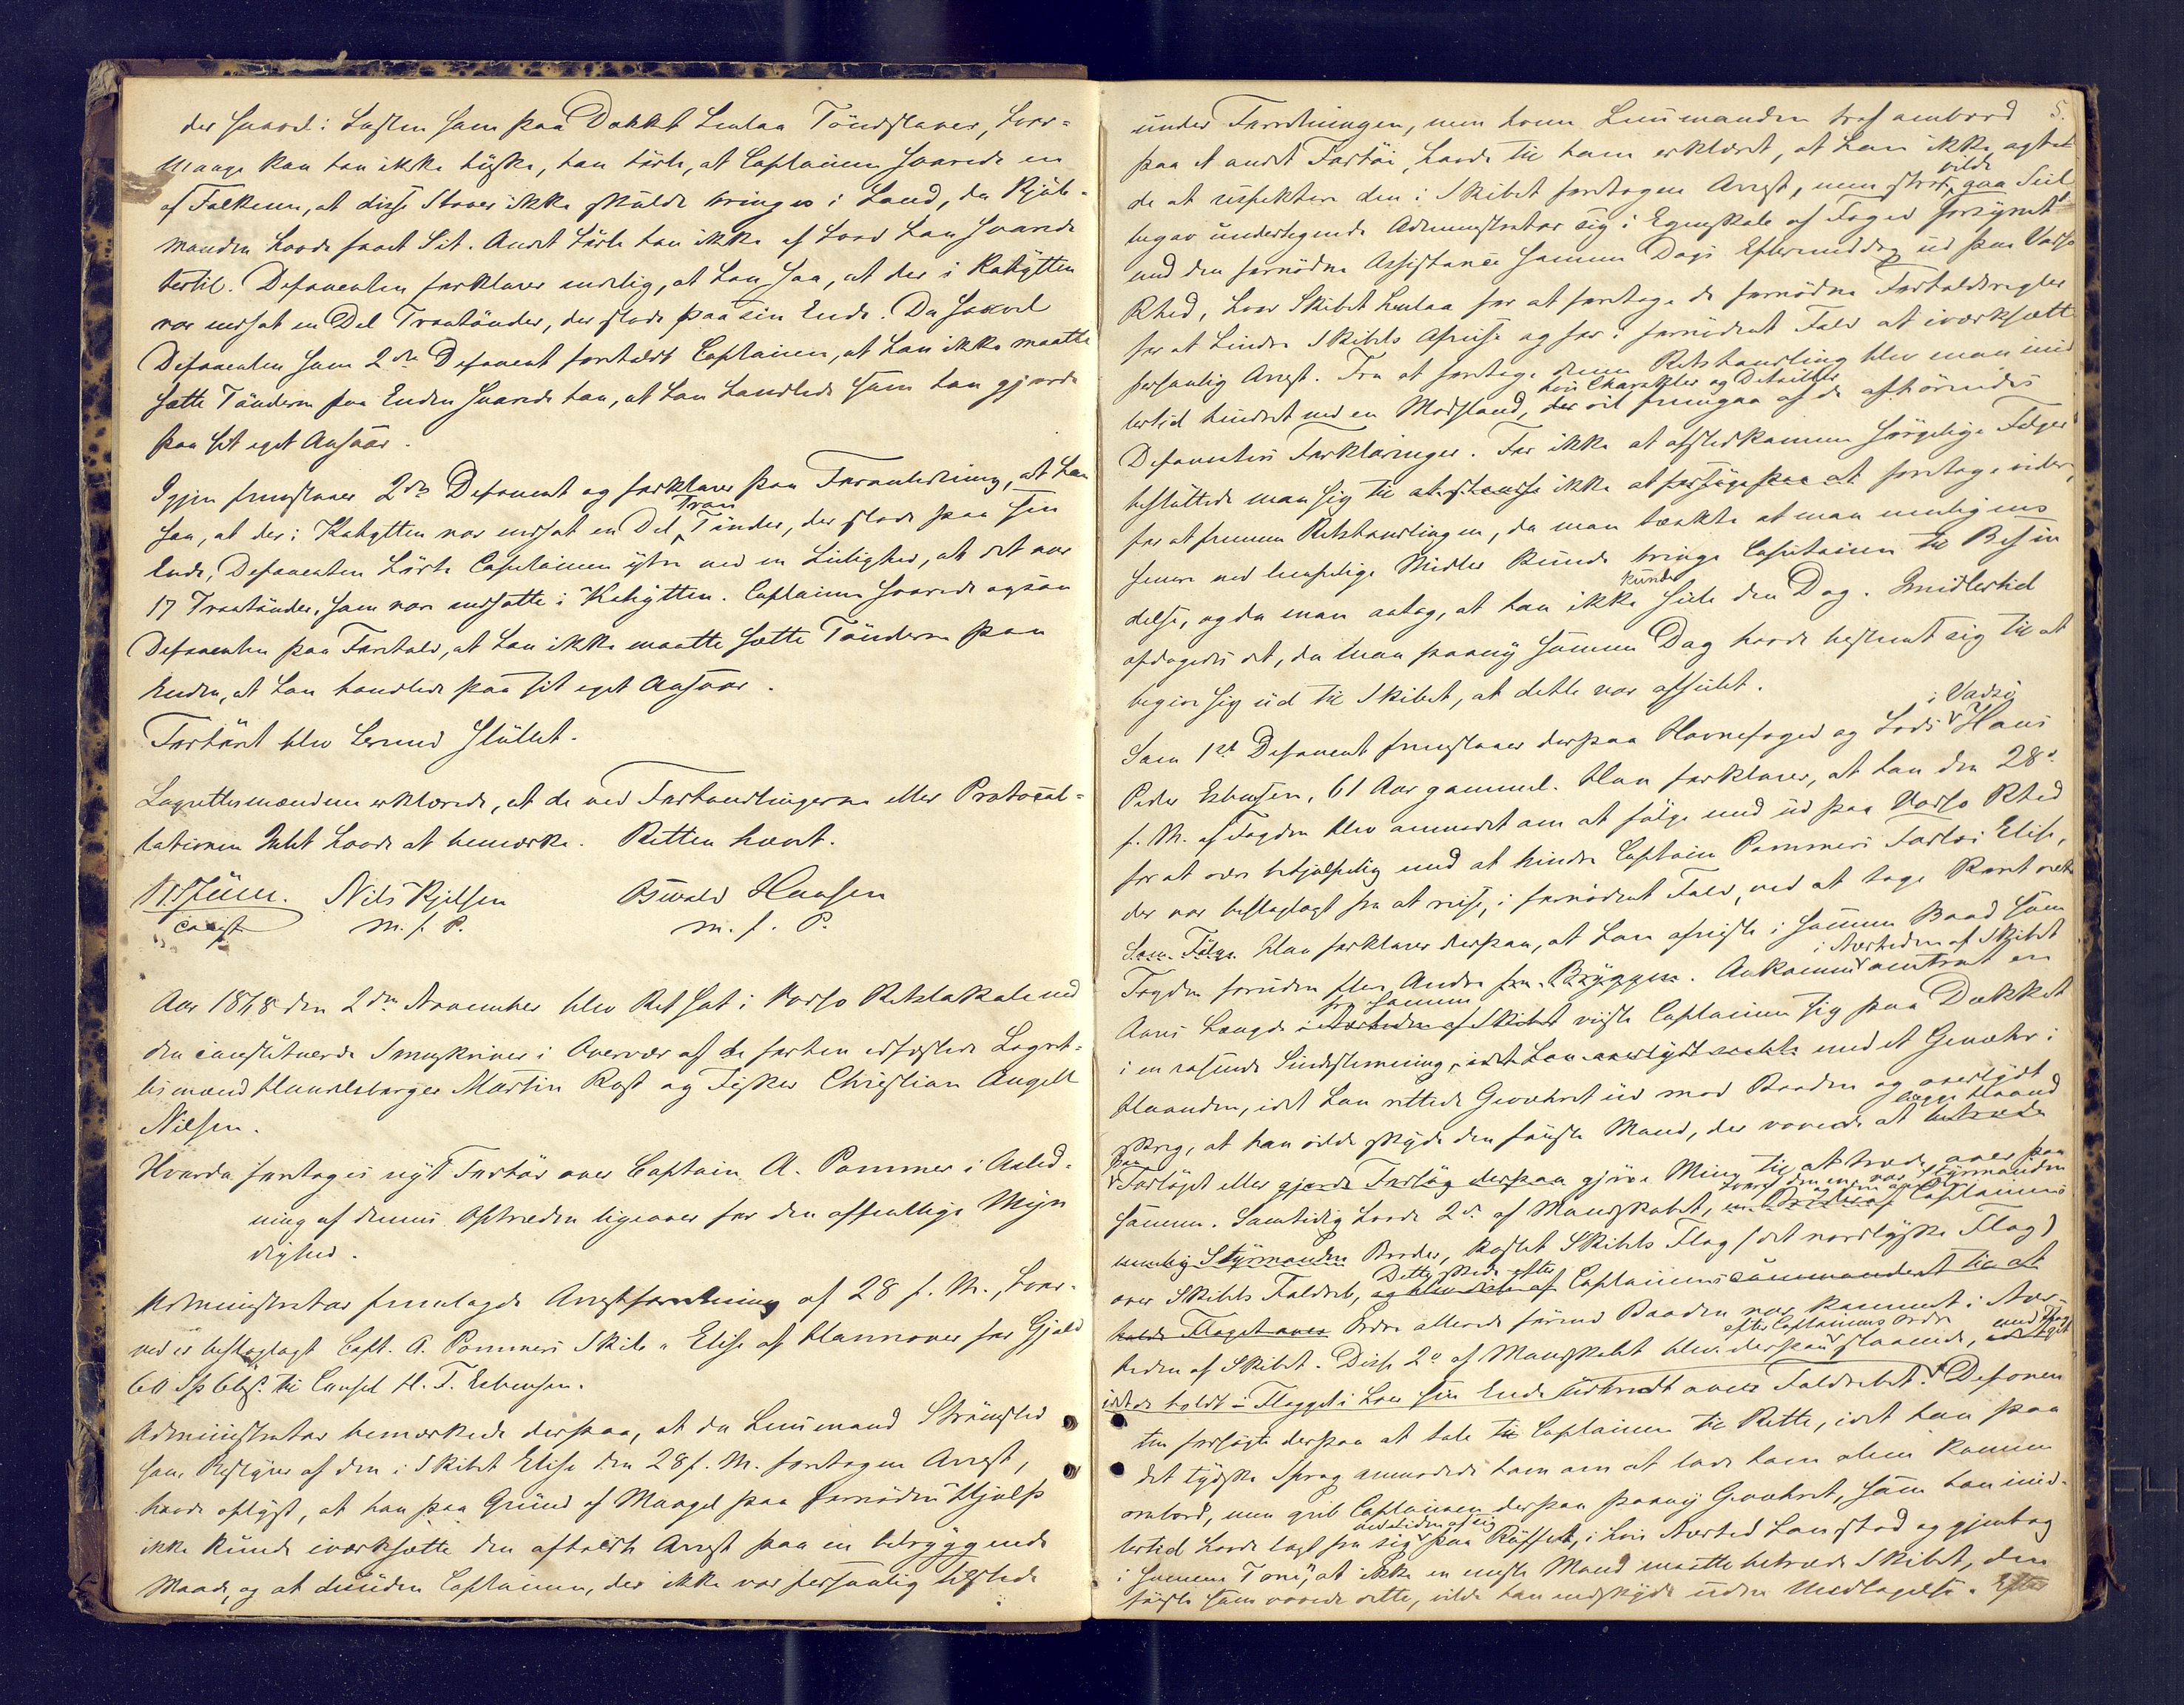 der saavel i Lasten som paa Dækket henlaa Töndstaver, hvor-
mange kan han ikke huske, han hörte, at Captainen svarede en
af Folkene, at disse Staver ikke skulde bringes i Land, da Kjöb-
manden havde faaet Sit. Andet hörte han ikke af hvad han svarede
hertil. Deponenten forklarer endelig, at han saa, at der i Kahytten
var indsat en Del Trantönder, der stode paa sin Ende. Da saavel
Deponenten som 2den Deponent foreholdt Captainen, at han ikke maatte
sætte Tönderne paa Enden svarede han, at han handlede som han gjorde
paa sit eget Ansvar.
Igjen fremstaaer 2den Deponent og forklarer paa Foranledning, at han
Tran
saa, at der i Kahytten var indsat en Del Tönder, der stode paa sin
Ende, Deponenten hörte Captainen ytre ved en Leilighed, at det var
17 Trantönder, som vare indsatte i Kahytten. Captainen svarede ogsaa
Deponenten paa Forehold, at han ikke maatte sætte Tönderne paa
Enden, at han handlede paa sit eget Ansvar.
Forhöret blev hermed sluttet.
Lagrettesmændene erklærede, at de ved Forhandlingerne eller Protocol-
lationen Intet havde at bemærke. Retten hævet.
Nils Kjelsen Oswald Hansen
const. m. f. P. m. f. P.
Aar 1868 den 2den November blev Ret sat i Vadsø Retslokale ved
den constituerede Sorenskriver i Overvær af de forhen edfæstede Lagret-
tesmænd Handelsborger Martin Rost og Fisker Christian Angell
Nilsen.
Hvorda foretages nyt Forhör over Captain A. Pommer i Anled-
ning af dennes Optræden ligeover for den offentlige Myn
dighed.
Administrator fremlagde Arrestforretning af 28 f. M., hvor-
ved er beslaglagt Capt. A. Pommers Skib "Elise af Hannover for Gjeld
til Consul H. T. Esbensen.
Administrator bemærkede derpaa, at da Lensmand Strömsted
som Bestyrer af den i Skibet Elise den 28 f. M. foretagne Arrest,
havde oplyst, at han paa Grund af Mangel paa fornöden Hjelp
ikke kunde iværksætte den afholdte Arrest paa en betryggende
Maade, og at desuden Captainen, der ikke var personlig tilstede
5.
under Forretningen, men hvem Lensmanden traf ombord
paa et andet Fartöi, havde til ham erklæret, at han ikke agte
vilde
de at respektere den i Skibet foretagne Arrest, men strax gaa Seil
begav undertegnede Administrator sig i Egenskab af Foged forsynet
med den fornödne Assistance samme Dags Eftermiddag ud paa Vadsø
Rhed, hvor Skibet henlaa for at foretage de fornödne Forholdsregler
for at hindre Skibets Afreise og for i fornödent Fald at iværksætte
personlig Arrest. Fra at foretage denne Retshandling blev man imid
hvis Charakter og Detailler
lertid hindret ved en Modstand, der vil fremgaa af de afhörendes
Deponenters Forklaringer. For ikke at afstedkomme sörgelige Fölger
besluttede man sig til at standse ikke at forsöge paa at foretage videre,
for at fremme Retshandlingen, da man tænkte at man muligens
senere ved lempelige Midler kunde bringe Captainen til Besin
kunde
delse, og da man antog, at han ikke seile den Dag. Imidlertid
opdagedes det, da man paany samme Dag havde bestemt sig til at
begive sig ud til Skibet, at dette var afseilet.
i Vadsö
Som 1st Deponent fremstaaer derpaa Havnefoged og Lods Hans
Peder Esbensen, 61 Aar gammel. Han forklarer, at han den 28de
f. M. af Fogden blev anmodet om at fölge med ud paa Vadsø Rhed
for at være behjelpelig med at hindre Captain Pommers Fartöi Elise,
der var beslaglagt fra at reise, i fornödent Fald, ved at tage Roret
Fölge. Han forklarer derpaa, at han afreiste i samme Baad som
i Nærheden af Skibet
Fogden foruden flere Andre fra Bryggen. Ankommen omtrent en
fra samme
Aares Længde i Nærheden af Skibet viiste Captainen sig paa Dækket
i en rasende Sindsstemning, idet han med et Gevæhr i
Haanden, idet han rettede Gevæhret ud mod Baaden og overlydt
lægge Haand
skreg, at han vilde skyde den förste Mand, der vovede at betræde
paa
Fartöiet eller gjorde Forsög derpaa gjöre Mine til at træde over paa
hvoraf den ene var Styrmanden
samme. Samtidig havde 2de af Mandskabet, Captainens
nemlig Styrmanden Broder, kastet Skibets Flag (det nordtyske Flag)
Dette skede efter
over Skibets Faldreb, og blev dette af Captainens commanderet til at
holde Flaget over Ordre allerede förend Baaden var kommet i Nær-
efter Captainens Ordre
heden af Skibet. Disse 2de af Mandskabet blev derpaa staaende,
idet de holdt i Flagget i hver sin Ende udbredt over Faldrebet. Deponen
ten forsögte derpaa at tale til Captainen til Rette, idet han paa
det tydske Sprog anmodede ham om at lade ham alene komme
ombord, men greb Captainen derpaa paany Gevæhret, som han imid-
ved Siden af sig
lertid havde lagt fra sig paa Röffet, i hvis Nærhed han stod og gjentog
i samme Tone, at ikke en eneste Mand maatte betræde Skibet, den
förste som vovede dette, vilde han nedskyde uden Undtagelse. Efter